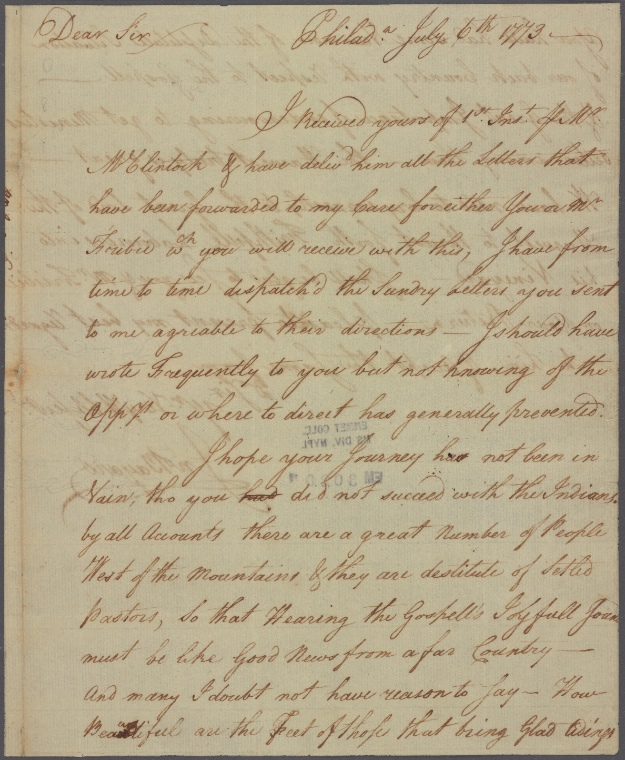 Dear Sir Philad.a July 6th 1773
I Received yours of 1st Inst. of Mr.
McClintock & have deliv'd him all the Letters that
have been forwarded to my Care for either You or Mr
Fribie wch you will receive with this, I have from
time to time dispatch'd the Sundry Letters you sent
to me agriable to their directions — I should have
wrote Frequently to you but not knowing of the
Oppy. or where to direct has generally prevented.
I hope your Journey has not been in
Vain, tho you had did not succeed with the Indians.
by all Acounts there are a great Number of People
West of the Mountains, & they are destitute of Setled
Pastors, So that Hearing the Gospell's Joyfull Soun
must be like Good News from a far Country —
And many I doubt not have reason to Say — How
Beautiful are the Feet of those that bring Glad tidings
EMMET COLL.
MS DIV. NYPL
EM